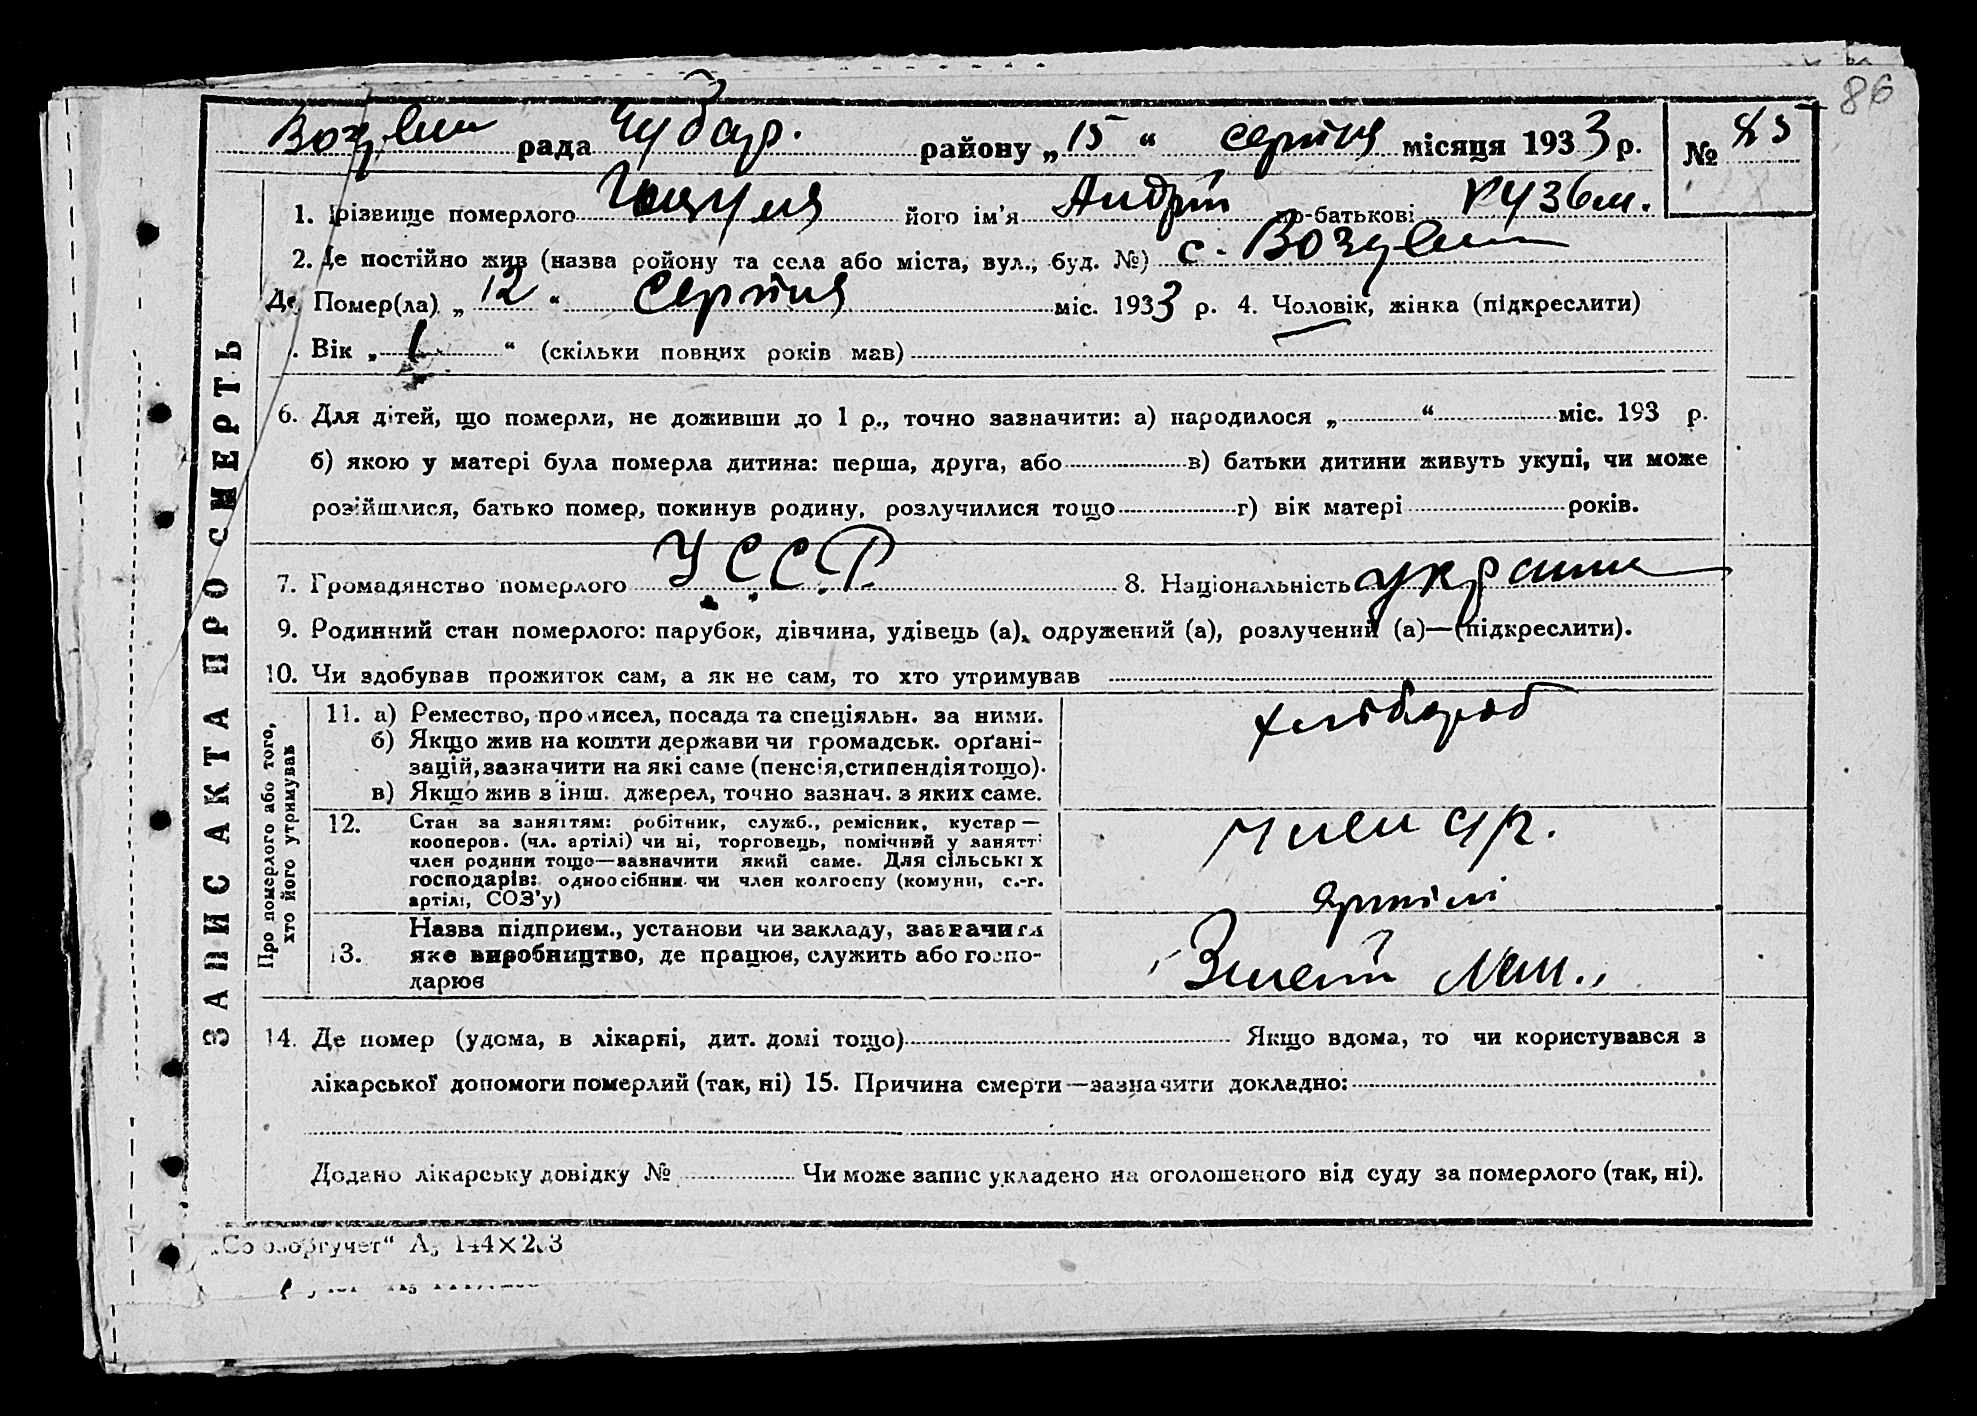 86
рада Чубар. району „15“ серпня місяця 1933 р. № 85
1. Прізвище померлого його ім'я Андрій по-батькові Кузьм.
2. Де постійно жив (назва ройону та села або міста, вул., буд. №) с.
Де Помер(ла) „12“ серпня міс. 1933 р. 4. Чоловік, жінка (підкреслити)
. Вік „1“ (скільки повних років мав)
6. Для дітей, що померли, не доживши до 1 р., точно зазначити: а) народилося „ “ міс. 193 р.
б) якою у матері була померла дитина: перша, друга, або в) батьки дитини живуть укупі, чи може
розійшлися, батько помер, покинув родину, розлучилися тощо г) вік матері років.
7. Громадянство померлого У.С.С.Р. 8. Національність україн
9. Родинний стан померлого: парубок, дівчина, удівець (а), одружений (а), розлучений (а)—(підкреслити).
10. Чи здобував прожиток сам, а як не сам, то хто утримував
ЗАПИС АКТА ПРО СМЕРТЬ
Про померлого або того,
хто його утримував
11. а) Ремество, промисел, посада та спеціяльн. за ними.
б) Якщо жив на кошти держави чи громадськ. орґані-
зацій, зазначити на які саме (пенсія, стипендія тощо).
в) Якщо жив з інш. джерел, точно зазнач. з яких саме.
хлібороб
12. Стан за заняттям: робітник, служб., ремісник, кустар—
кооперов. (чл. артілі) чи ні, торговець, помічний у занятті
член родини тощо—зазначити який саме. Для сільських
господарів: одноосібник чи член колгоспу (комуни, с.-г.
артілі, СОЗ'у)
член
артілі
13. Назва підприєм., установи чи закладу, зазначити
яке виробництво, де працює, служить або госпо-
дарює
14. Де помер (удома, в лікарні, дит. домі тощо) Якщо вдома, то чи користувався з
лікарської допомоги померлий (так, ні) 15. Причина смерти—зазначити докладно:
Додано лікарську довідку № Чи може запис укладено на оголошеного від суду за померлого (так, ні).
„Союзоргучет“ А5 144×203